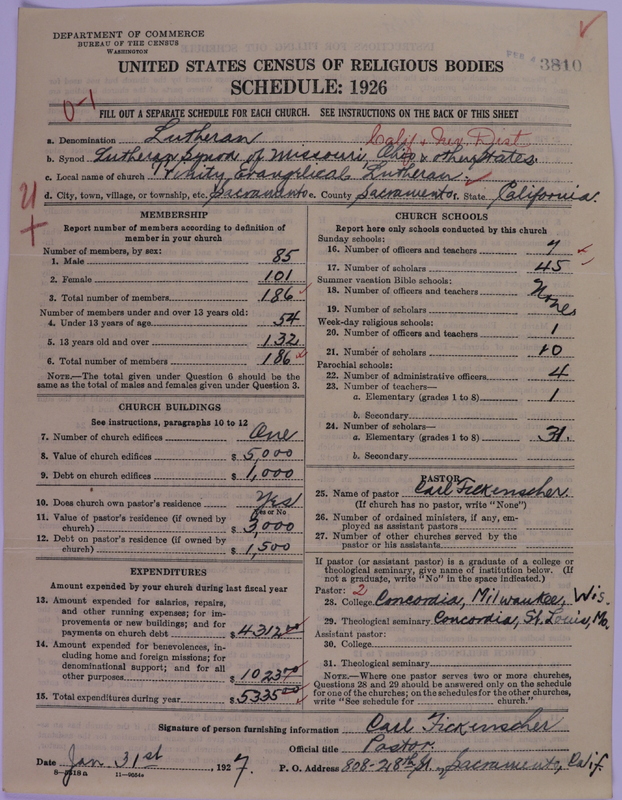 DEPARTMENT OF COMMERCE
BUREAU OF THE CENSUS
WASHINGTON
3810
UNITED STATES CENSUS OF RELIGIOUS BODIES
SCHEDULE: 1926
0-1
FILL OUT A SEPARATE SCHEDULE FOR EACH CHURCH. SEE INSTRUCTIONS ON THE BACK OF THIS SHEET
a. Denomination Lutheran Calif & Nev. Dist
b. Synod Lutheran Synod of Missouri, Ohio & other States.
c. Local name of church Trinity Evangelical Lutheran
d. City, town, village, or township, etc. Sacramento e. County Sacramento f. State California.
MEMBERSHIP
Report number of members according to definition of
member in your church
Number of members, by sex:
1. Male 85
2. Female 101
3. Total number of members 186
Number of members under and over 13 years old:
4. Under 13 years of age 54
5. 13 years old and over 132
6. Total number of members 186
NOTE.—The total given under Question 6 should be the
same as the total of males and females given under Question 3.
CHURCH BUILDINGS
See instructions, paragraphs 10 to 12
7. Number of church edifices One
8. Value of church edifices $ 5,000
9. Debt on church edifices $ 1,000
10. Does church own pastor's residence Yes
Yes or No
11. Value of pastor's residence (if owned by
church) $ 3,000
12. Debt on pastor's residence (if owned by
church) $ 1,500
EXPENDITURES
Amount expended by your church during last fiscal year
13. Amount expended for salaries, repairs,
and other running expenses; for im-
provements or new buildings; and for
payments on church debt $ 4312.00
14. Amount expended for benevolences, in-
cluding home and foreign missions; for
denominational support; and for all
other purposes $ 1023.00
15. Total expenditures during year $ 5335.00
CHURCH SCHOOLS
Report here only schools conducted by this church
Sunday schools:
16. Number of officers and teachers 7
17. Number of scholars 45
Summer vacation Bible schools:
18. Number of officers and teachers
19. Number of scholars
None
Week-day religious schools:
20. Number of officers and teachers 1
21. Number of scholars 10
Parochial schools:
22. Number of administrative officers 4
23. Number of teachers—
a. Elementary (grades 1 to 8) 1
b. Secondary
24. Number of scholars—
a. Elementary (grades 1 to 8) 31.
b. Secondary
PASTOR
25. Name of pastor Carl Fickenscher
(If church has no pastor, write "None")
26. Number of ordained ministers, if any, em-
ployed as assistant pastors
27. Number of other churches served by the
pastor or his assistants
If pastor (or assistant pastor) is a graduate of a college or
theological seminary, give name of institution below. (If
not a graduate, write "No" in the space indicated.)
Pastor: 2
28. College Concordia, Milwaukee, Wis.
29. Theological seminary Concordia, St. Louis, Mo.
Assistant pastor:
30. College
31. Theological seminary
NOTE.—Where one pastor serves two or more churches,
Questions 28 and 29 should be answered only on the schedule
for one of the churches; on the schedules for the other churches,
write "See schedule for church."
Signature of person furnishing information Carl Fickenscher
Official title Pastor.
Date Jan. 31st, 1927. P. O. Address 808-28th St., Sacramento, Calif.
8-3518a 11-9554